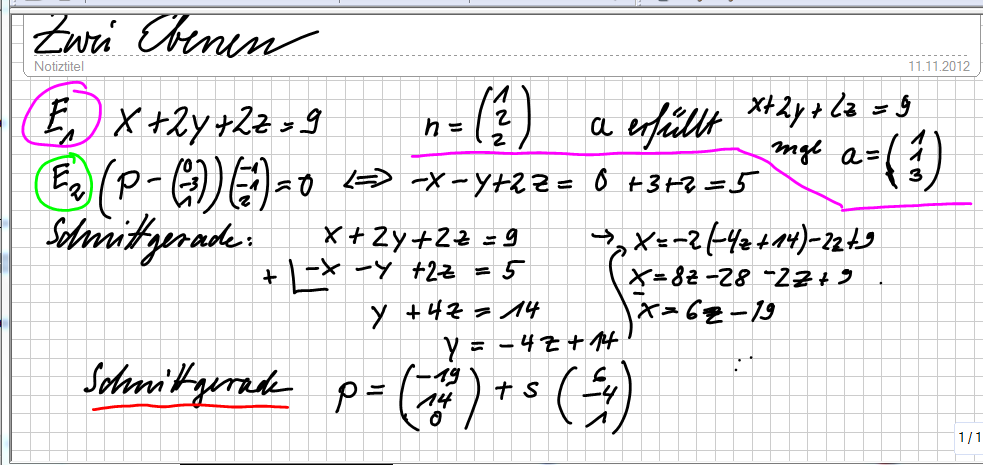 Zwei Ebenen
Notiztitel 11.11.2012
E₁ x+2y+2z=9 n=(1 2 2) a erfüllt x+2y+2z=9
mgl a=(1 1 3)
E₂ (p-(0 -3 1))(-1 -1 2)=0 ⟺ -x-y+2z= 0 +3+2=5
Schnittgerade: x+2y+2z=9 → x=-2(-4z+14)-2z+9
+ -x -y +2z = 5 x=8z-28-2z+9
y +4z = 14 x=6z-19
y = -4z+14
Schnittgerade p=(-19 14 0)+s(6 -4 1)
1/1